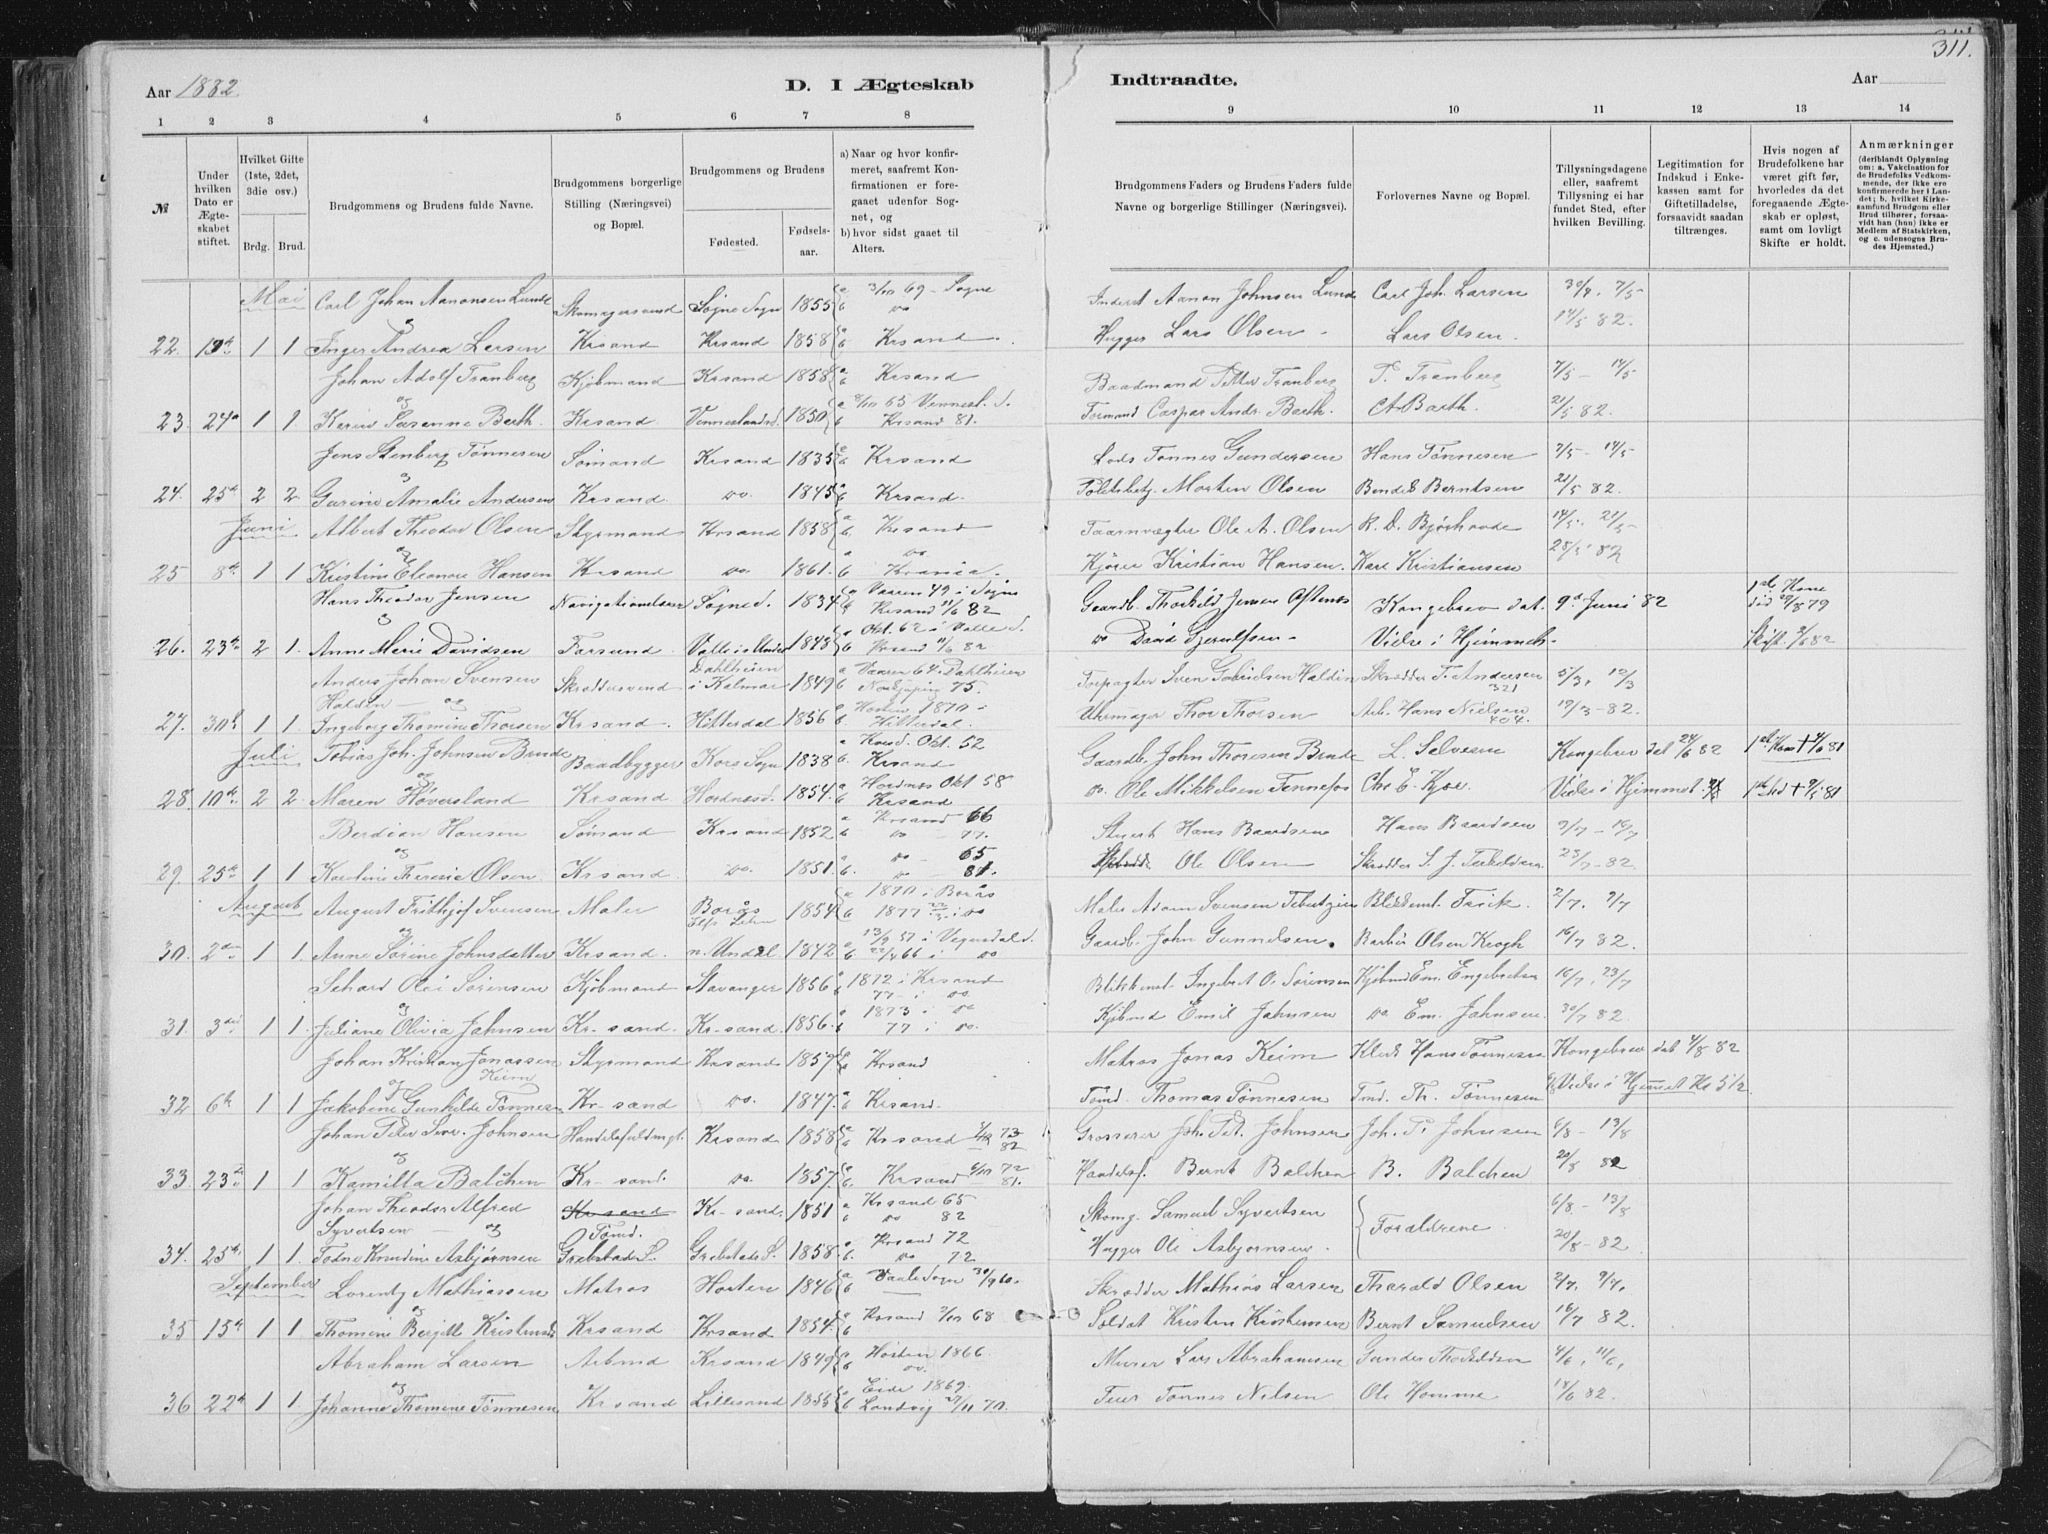 311.
Aar 1882
D. I Ægteskab
Indtraadte.
Aar
1 2 3 4 5 6 7 8
9 10 11 12 13 14
№
Under hvilken Dato er Ægteskabet stiftet.
Hvilket Gifte (1ste, 2det, 3die osv.)
Brdg. Brud.
Brudgommens og Brudens fulde Navne.
Brudgommens borgerlige Stilling (Næringsvei) og Bopæl.
Brudgommens og Brudens
Fødested.
Fødselsaar.
a) Naar og hvor konfirmeret, saafremt Konfirmationen er foregaaet udenfor Sognet, og
b) hvor sidst gaaet til Alters.
Brudgommens Faders og Brudens Faders fulde Navne og borgerlige Stillinger (Næringsvei).
Forlovernes Navne og Bopæl.
Tillysningsdagene eller, saafremt Tillysning ei har fundet Sted, efter hvilken Bevilling.
Legitimation for Indskud i Enkekassen samt for Giftetilladelse, forsaavidt saadan tiltrænges.
Hvis nogen af Brudefolkene har været gift før, hvorledes da det foregaaende Ægteskab er opløst, samt om lovligt Skifte er holdt.
Anmærkninger (deriblandt Oplysning om: a. Vakcination for de Brudefolks Vedkommende, der ikke ere konfirmerede her i Landet; b. hvilket Kirkesamfund Brudgom eller Brud tilhører, forsaavidt han (hun) ikke er Medlem af Statskirken, og c. udensogns Brudes Hjemsted.)
Mai Carl Johan Aanonsen Lunde Skomagersvend Søgne Sogn 1855 a 3/10 69 - Sogne Inderst Aanon Johnsen Lunde Carl Joh. Larsen 30/4, 7/5
og b do
22. 19de 1 1 Inger Andrea Larsen Krsand Krsand 1858 a b Krsand. Hugger Lars Olsen - Lars Olsen. 14/5 82.
Johan Adolf Tranberg Kjøbmand Krsand 1858 a b Krsand Baadmand Petter Tranberg P. Tranberg 7/5 - 14/5
og
23. 24de 1 1. Karen Susanne Barth. Krsand. Venneslands. 1850 a 8/10 65 Vennesl. S. b Krsand 81. Formand Caspar Andr. Barth. A Barth. 21/5 82.
Jens Stenberg Tønnesen Sømand Krsand 1835 a b Krsand Lods Tønnes Gundersen Hans Tønnesen 7/5 - 14/5
og
24. 25de 2 2. Gurine Amalie Andersen Krsand do. 1845 a b Krsand. Toldsbetj. Morten Olsen Bendel Berntsen 21/5 82.
Juni Albert Theodor Olsen Styrmand Krsand 1858 a b. Krsand Taarnvægter Ole A. Olsen R. D. Bjørhovde 14/5. 21/5
og
25 8de 1 1 Kristine Eleonore Hansen Krsand do. 1861. a do b Krania. Kjører Kristian Hansen. Karl Kristiansen 28/5 82
Hans Theodor Jensen Navigationslærer Søgne S. 1834 a Vaaren 49 i Søgne b Krsand 11/6 82 Gaardb. Thorkild Jensen Aftenes Kongebrev dat. 9de Juni 82 1ste Kone død 29/8 79
og
26. 23de 2 1. Anne Marie Davidsen Farsund Valle i Undal 1848 a Okt. 62 i Valle S. b Krsand 11/6 82 do David Gjerulfsen - Vielse i Hjemmet. Skift. 2/6 82
Anders Johan Svensen Skræddersvend Dahlheim i Kalmar 1849 a Vaaren 64 Dahlheim b Norkjøping 75. Forpagter Sven Gabrielsen Haldin Skrædder T. Andersen 321 5/3, 12/3
Haldin - og
27. 30te 1 1. Ingeborg Thomine Thorsen Krsand. Hitterdal 1856 a Høsten 1870 - b Hitterdal. Uhrmager Thor Thorsen Arb. Hans Nielsen 404. 19/3 - 82.
Juli Tobias Joh. Johnsen Brude Baadbygger Kors Sogn 1838 a Korsd. Okt. 52 b. Krsand Gaardb. John Thoresen Brude L. Salvesen Kongebrev dat 24/6 82 1ste Kone † 4/6 81
og
28. 10de 2 2. Maren Høversland Krsand Hordnæs. 1854. a Hordnæs Okt 58 b Krsand do. Ole Mikkelsen Tennefos Chr. E. Kjær Vielse i Hjemmet. 1ste Md † 9/5 81
Berdian Hansen Sømand Krsand 1852 a Krsand 66 b do 77. Stuert Hans Baardsen Hans Baardsen 9/7 - 16/7
og
29. 25de 1 1 Karoline Theresie Olsen. Krsand. do. 1851. a do - 65 b. do 81. Ole Olsen Skrædder 23/7 - 82
August August Frithjof Svensen Maler Borås Elfs Lehn 1854 a 1870 i Borås b 1877 22/3 i do Maler Adam Svensen Blikkensl. Frick. 2/7. 9/7
og
30. 2den 1 1 Anne Sørine Johnsdatter Krsand. n. Undal 1842 a 13/9 57 i Vegusdal S. b 22/4 66 i do Gaardb. John Gunnelsen. Barbér Olsen Krogh 16/7 82.
Sehard Olai Sørensen Kjøbmand Stavanger 1856 a 1872 i Krsand b 77 - i do. Blikkensl. Ingebret O. Sørensen Kjøbmd Em. Engebretsen 16/7, 23/7
og
31. 3die 1 1. Juliane Olivia Jahnsen Kr-sand. Kr-sand. 1856. a 1873 i do b 77 i do. Kjøbmd Emil Jahnsen do Em. Johnsen. 30/7 82.
Johan Kristian Jonassen Keim Styrmand Krsand 1857 a b Krsand Matros Jonas Keim Klerk Hans Tønnesen Kongebrev dat 4/8 82
og
32 6te 1 1 Jakobine Gunhilde Tønnesen Kr-sand do. 1847. a b Krsand. Tømd. Thomas Tønnesen Tmd. Th. Tønnesen & Vielse i Hjemmet Kl 5 1/2
Johan Peter Severin Johnsen Handelsfuldmgt. Krsand 1858 a b Krsand 1/10 73 82 Grosserer Joh. Pet. Johnsen Joh. P. Johnsen 6/8 - 13/8
og
33. 23de 1 1 Kamilla Balchen Kr-sand. do. 1857. a b Krsand 6/10 72 81. Handelsf. Bernt Balchen B. Balchen 20/8 82
Johan Theodor Alfred Syvertsen - og Krsand Tømd. Kr-sand. 1851 a Krsand 65 b do 82 Skomg. Samuel Syvertsen Forældrene. 6/8 - 13/8
34. 25de 1 1. Todne Knudine Asbjørnsen Grebstads S. Grebstads S. 1858. a Krsand 72 b. do 72 Hugger Ole Asbjørnsen. 20/8 - 82
September Lorentz Mathiassen Matros Horten 1846 a Vaale Sogn 30/9 60. b Skrædder Mathias Larsen Tharald Olsen 2/7. 9/7.
og
35 15de 1 1 Thomine Bergitte Kristensen Krsand Krsand 1854. a Krsand 2/10 68 b Soldat Kristen Kristensen Bernt Samuelsen 16/7 82.
Abraham Larsen Arbmd Krsand 1849 a Høsten 1866. b do. Murer Lars Abrahamsen Gunder Thorkildsen 4/6, 11/6,
og
36 22de 1 1. Johanne Thomine Tønnesen Krsand Lillesand 1855 a Eide 1869. b Landvig 27/11 70. Feier Tønnes Nilsen Ole Homme 18/6 82.